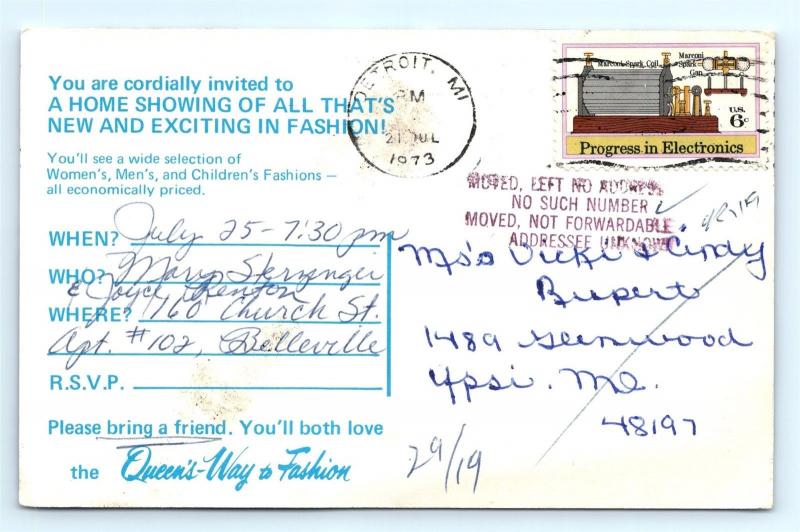 You are cordially invited to
A HOME SHOWING OF ALL THAT'S
NEW AND EXCITING IN FASHION!
You'll see a wide selection of
Women's, Men's, and Children's Fashions —
all economically priced.
WHEN? July 25-7:30 pm
WHO? Mary
& Joyce
WHERE? 160 Church St.
Apt. #102, Belleville
R.S.V.P.
Please bring a friend. You'll both love
the Queen's-Way to Fashion
DETROIT, MI
PM
21 JUL
1973
Marconi Spark Coil
Marconi
Spark
Gap
U.S.
6c
Progress in Electronics
MOVED, LEFT NO ADDRESS
NO SUCH NUMBER
MOVED, NOT FORWARDABLE
ADDRESSEE UNKNOWN
Ms's Vicki & Cindy
Rupert
1489 Glenwood
Ypsi. Mo.
48197
29/19